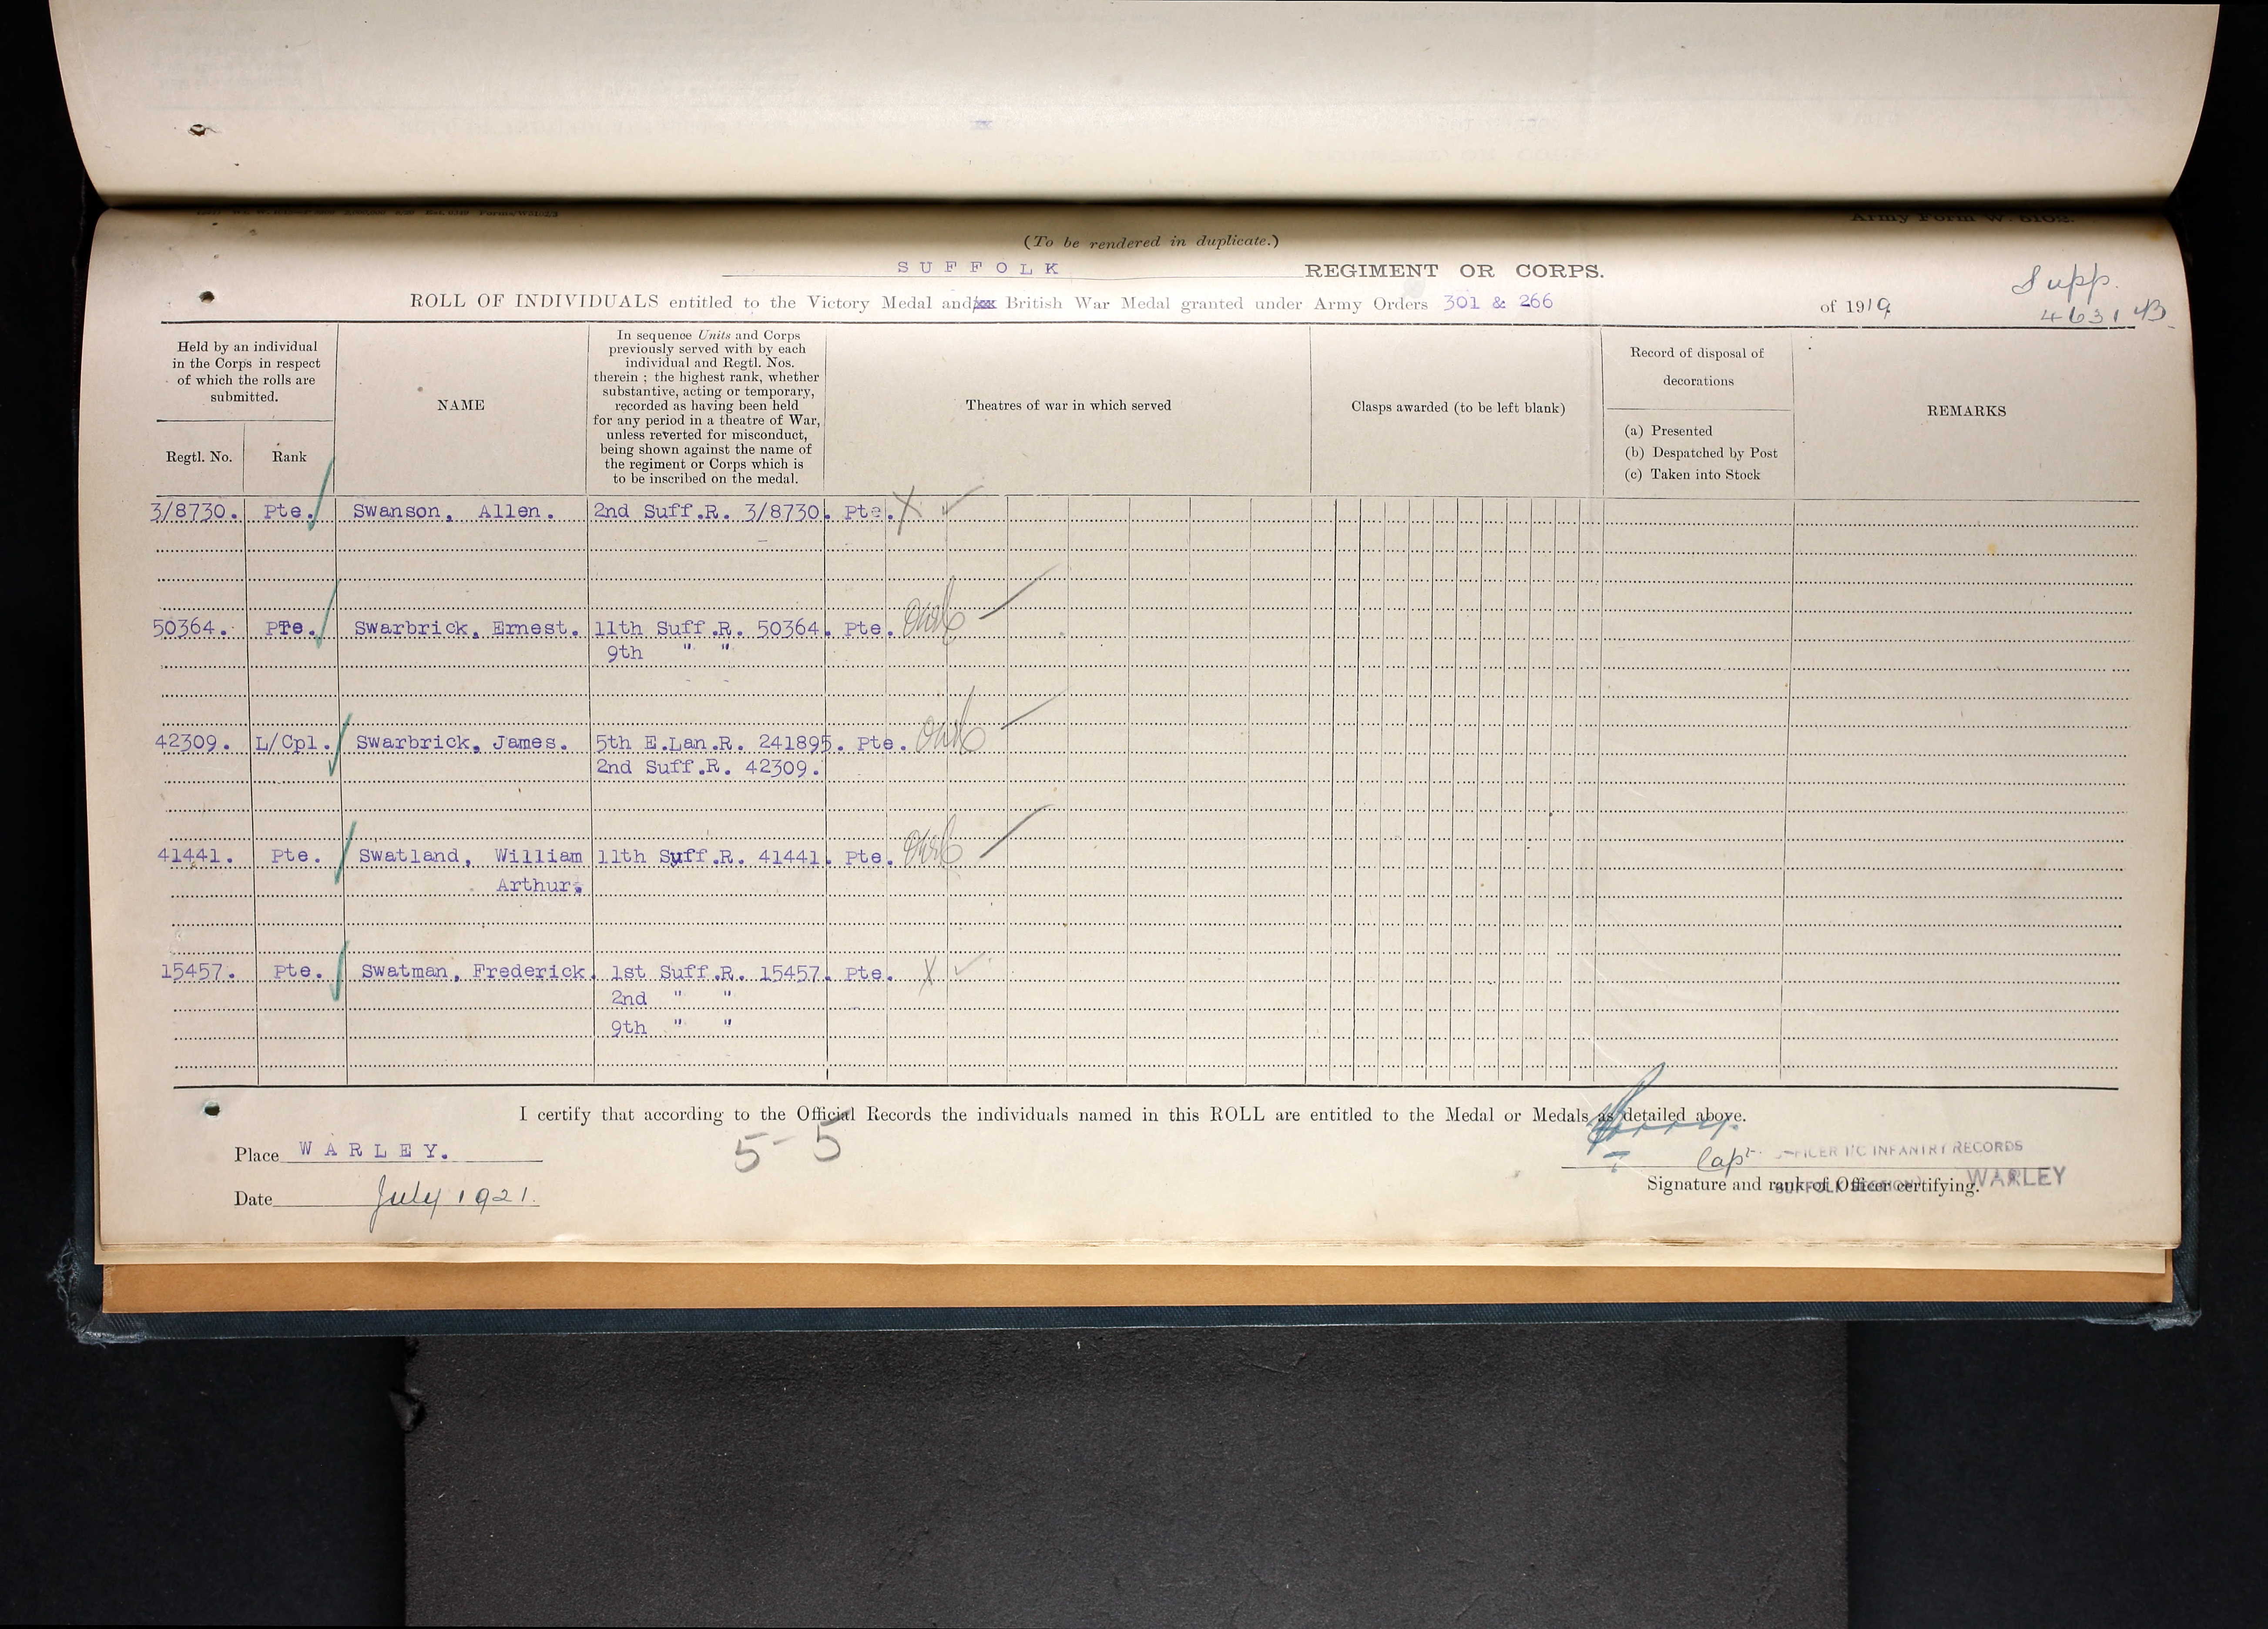 Army Form W. 5102.
(To be rendered in duplicate.)
SUFFOLK REGIMENT OR CORPS.
Supp.
ROLL OF INDIVIDUALS entitled to the Victory Medal and/xx British War Medal granted under Army Orders 301 & 266 of 1919
4631 B
Held by an individual
in the Corps in respect
of which the rolls are
submitted.
Regtl. No.
Rank
NAME
In sequence Units and Corps
previously served with by each
individual and Regtl. Nos.
therein ; the highest rank, whether
substantive, acting or temporary,
recorded as having been held
for any period in a theatre of War,
unless reverted for misconduct,
being shown against the name of
the regiment or Corps which is
to be inscribed on the medal.
Theatres of war in which served
Clasps awarded (to be left blank)
Record of disposal of
decorations
(a) Presented
(b) Despatched by Post
(c) Taken into Stock
REMARKS
3/8730. Pte. Swanson, Allen. 2nd Suff.R. 3/8730. Pte. X
50364. PTe. Swarbrick, Ernest. 11th Suff.R. 50364. Pte.
9th " "
42309. L/Cpl. Swarbrick, James. 5th E.Lan.R. 241895. Pte.
2nd Suff.R. 42309.
41441. Pte. Swatland, William 11th Suff.R. 41441. Pte.
Arthur.
15457. Pte. Swatman, Frederick. 1st Suff.R. 15457. Pte. X
2nd " "
9th " "
I certify that according to the Official Records the individuals named in this ROLL are entitled to the Medal or Medals as detailed above.
5-5
Place WARLEY.
Capt. OFFICER I/C INFANTRY RECORDS
Date July 1921.
Signature and rank of Officer certifying.
WARLEY